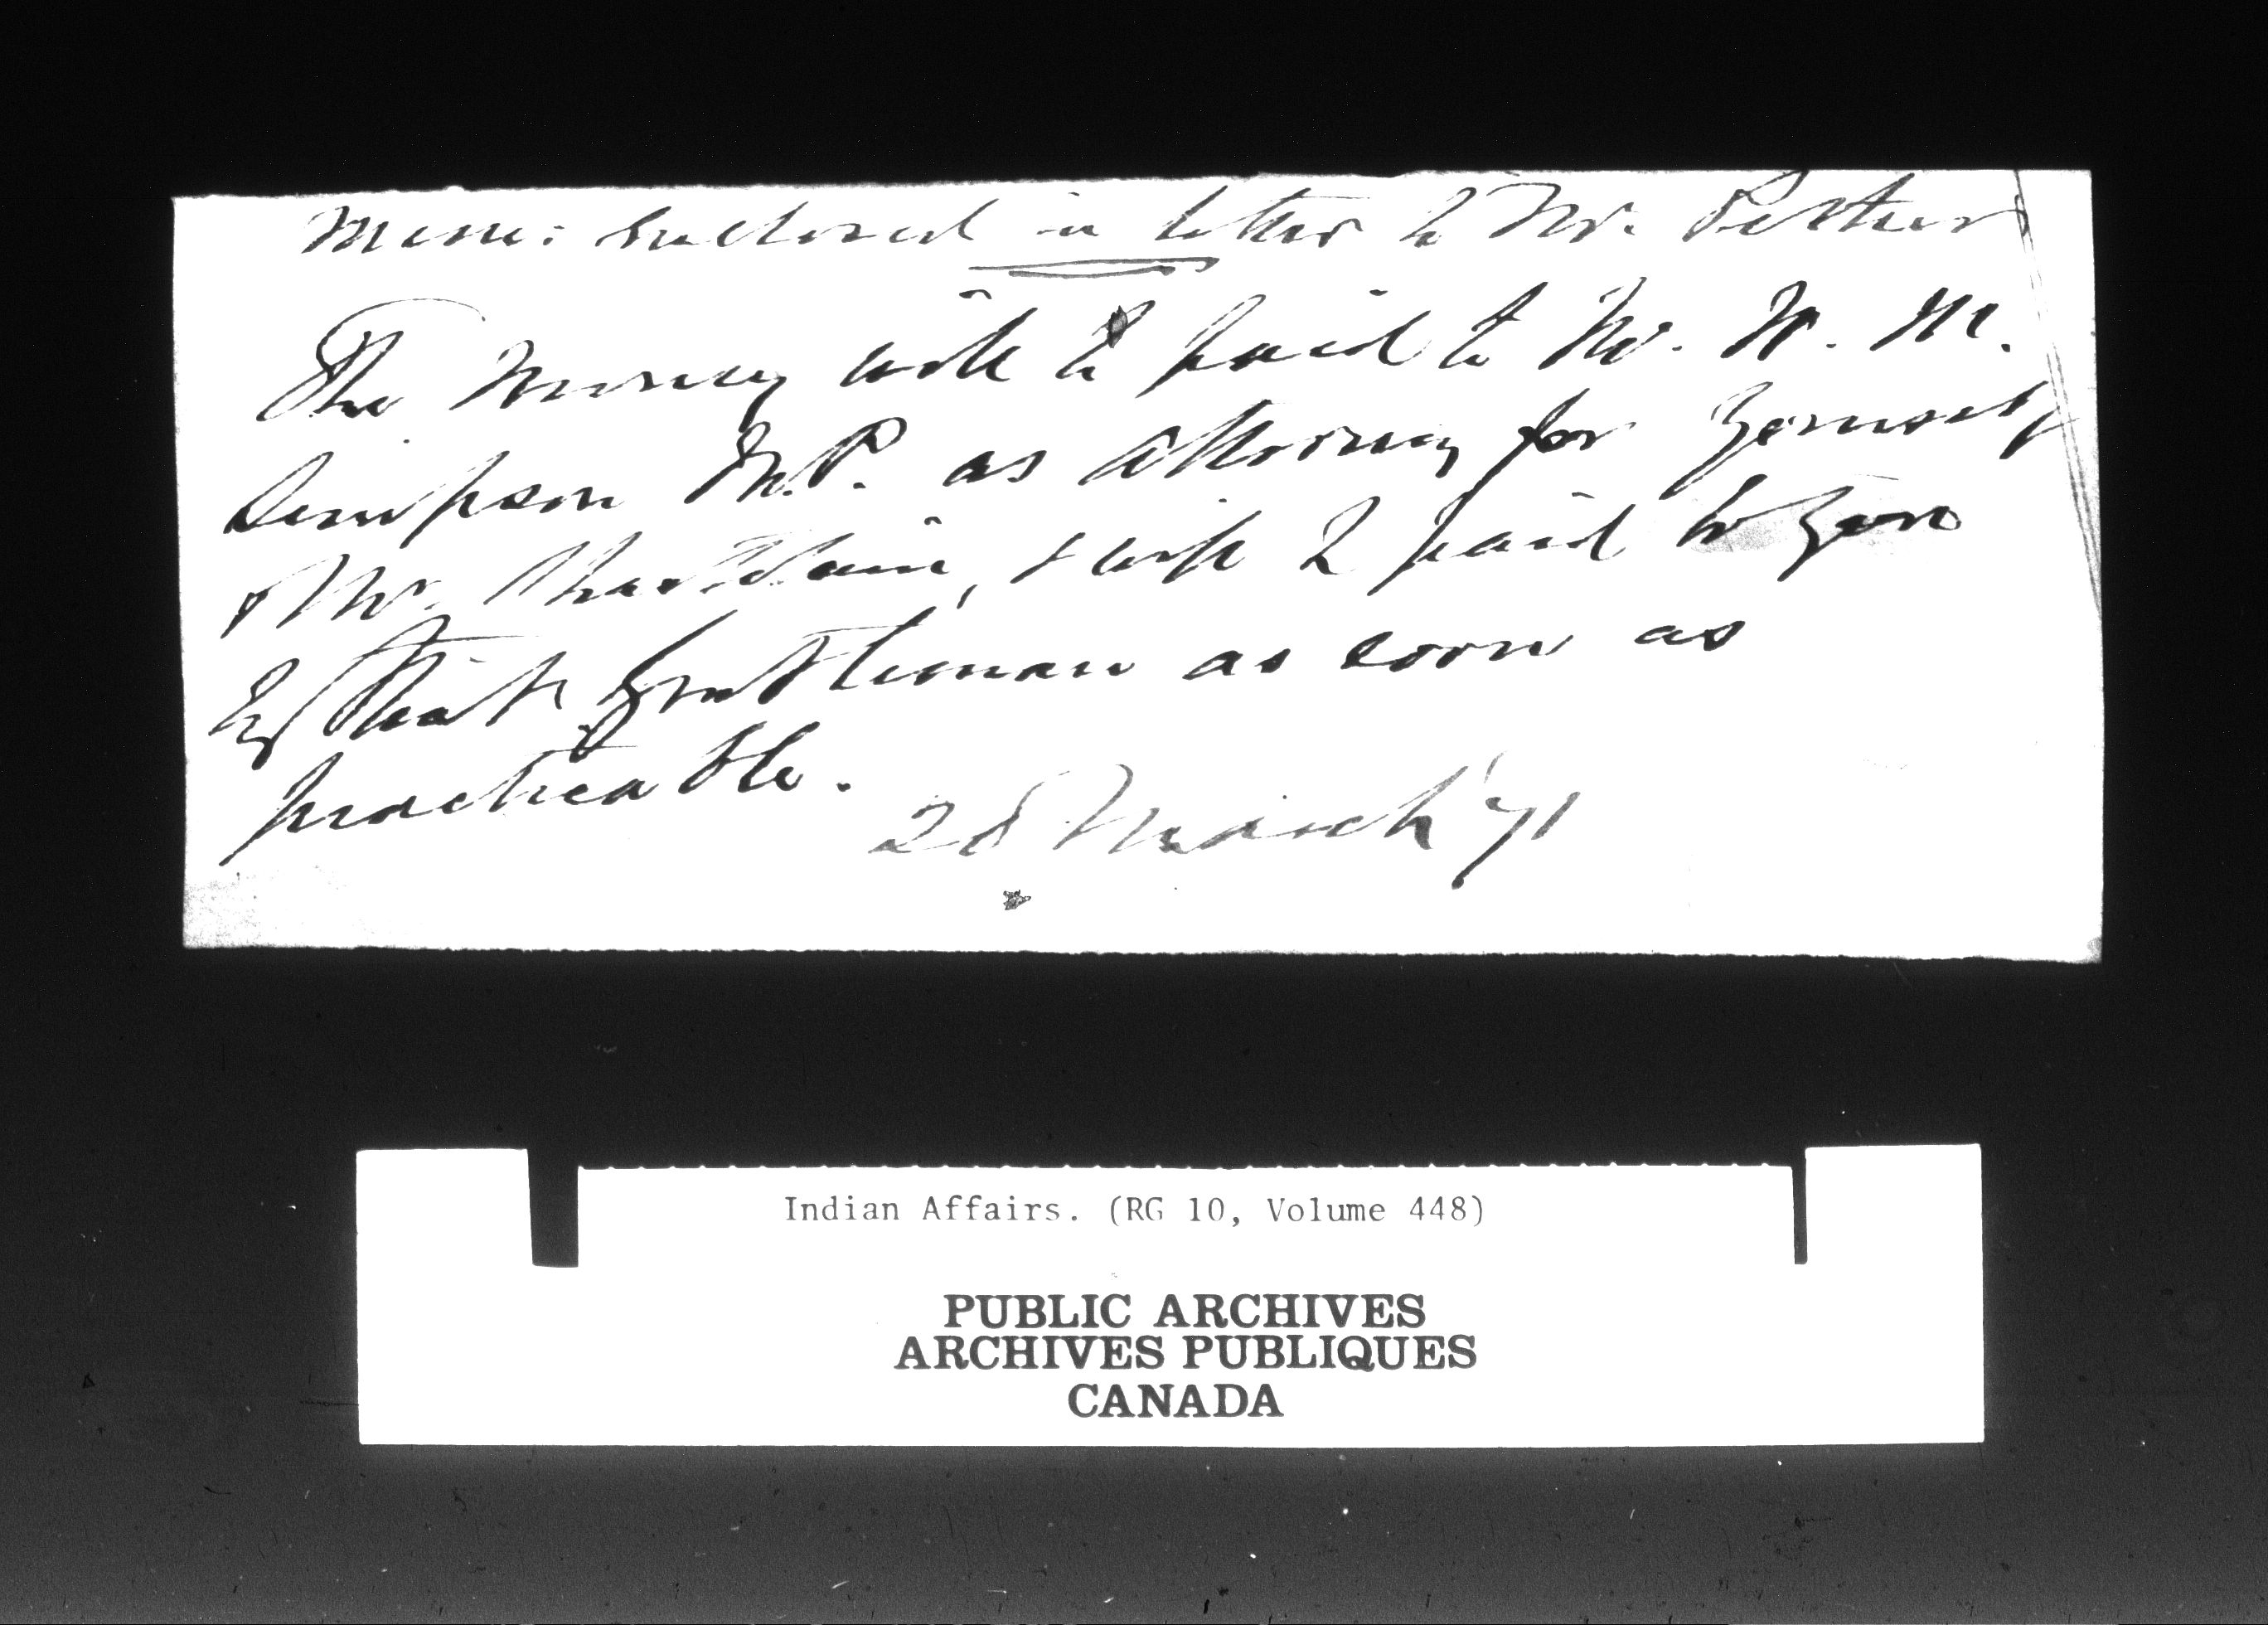 Memo: Enclosed in letter to Mr. Pether
The Money will be paid to Mr. W. M.
Simpson M.P. as Attorney for yourself
& Mr. & will be paid to you
by that gentleman as soon as
practicable.
28 March '71
Indian Affairs. (RG 10, Volume 448)
PUBLIC ARCHIVES
ARCHIVES PUBLIQUES
CANADA